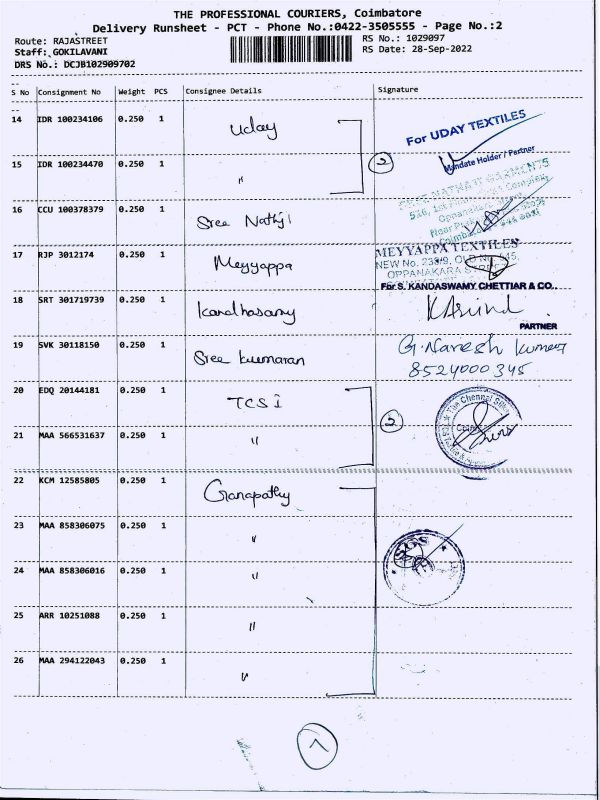 THE PROFESSIONAL COURIERS, Coimbatore
Delivery Runsheet - PCT - Phone No.:0422-3505555 - Page No.:2
Route: RAJASTREET
RS No.: 1029097
Staff: GOKILAVANI
RS Date: 28-Sep-2022
DRS No.: DCJB102909702
S No Consignment No Weight PCS Consignee Details Signature
14 IDR 100234106 0.250 1 Uday
For UDAY TEXTILES
Mandate Holder / Partner
15 IDR 100234470 0.250 1 "
2
16 CCU 100378379 0.250 1 Sree Nathji
17 RJP 3012174 0.250 1 Meyyappa
MEYYAPPA TEXTILES
OPPANAKARA
For S. KANDASWAMY CHETTIAR & CO.,
18 SRT 301719739 0.250 1 Kandhasamy
K Arvind
PARTNER
19 SVK 30118150 0.250 1 Sree kumaran
G. Naresh kumar
8524000345
20 EDQ 20144181 0.250 1 TCS I
2
The Chennai Silks
21 MAA 566531637 0.250 1 "
22 KCM 12585805 0.250 1 Ganapathy
23 MAA 858306075 0.250 1 "
24 MAA 858306016 0.250 1 "
25 ARR 10251088 0.250 1 "
26 MAA 294122043 0.250 1 "